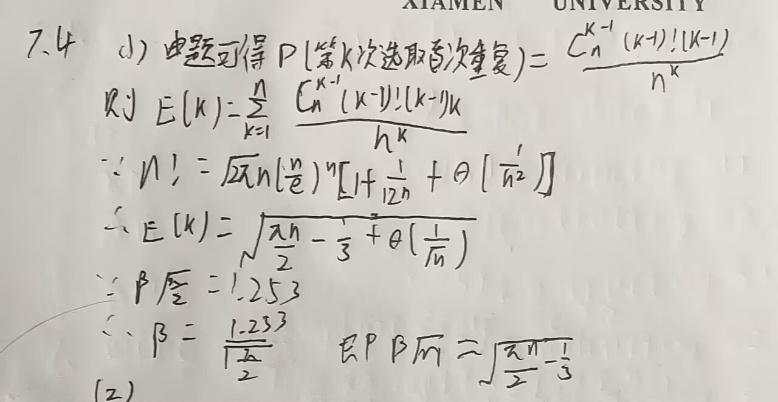 XIAMEN UNIVERSITY
7.4 (1) 由题可得 P(第K次选取首次重复) = \frac{C_n^{K-1}(K-1)!(K-1)}{n^K}
则 E(K) = \sum_{K=1}^{n} \frac{C_n^{K-1}(K-1)!(K-1)K}{n^K}
∵ n! = \sqrt{2πn}(\frac{n}{e})^n[1+\frac{1}{12n}+θ(\frac{1}{n^2})]
∴ E(K) = \sqrt{\frac{πn}{2}-\frac{1}{3}+θ(\frac{1}{\sqrt{n}})}
∵ β\sqrt{\frac{π}{2}} = 1.253
∴ β = \frac{1.253}{\sqrt{\frac{π}{2}}} 即 β\sqrt{n} = \sqrt{\frac{πn}{2}-\frac{1}{3}}
(2)